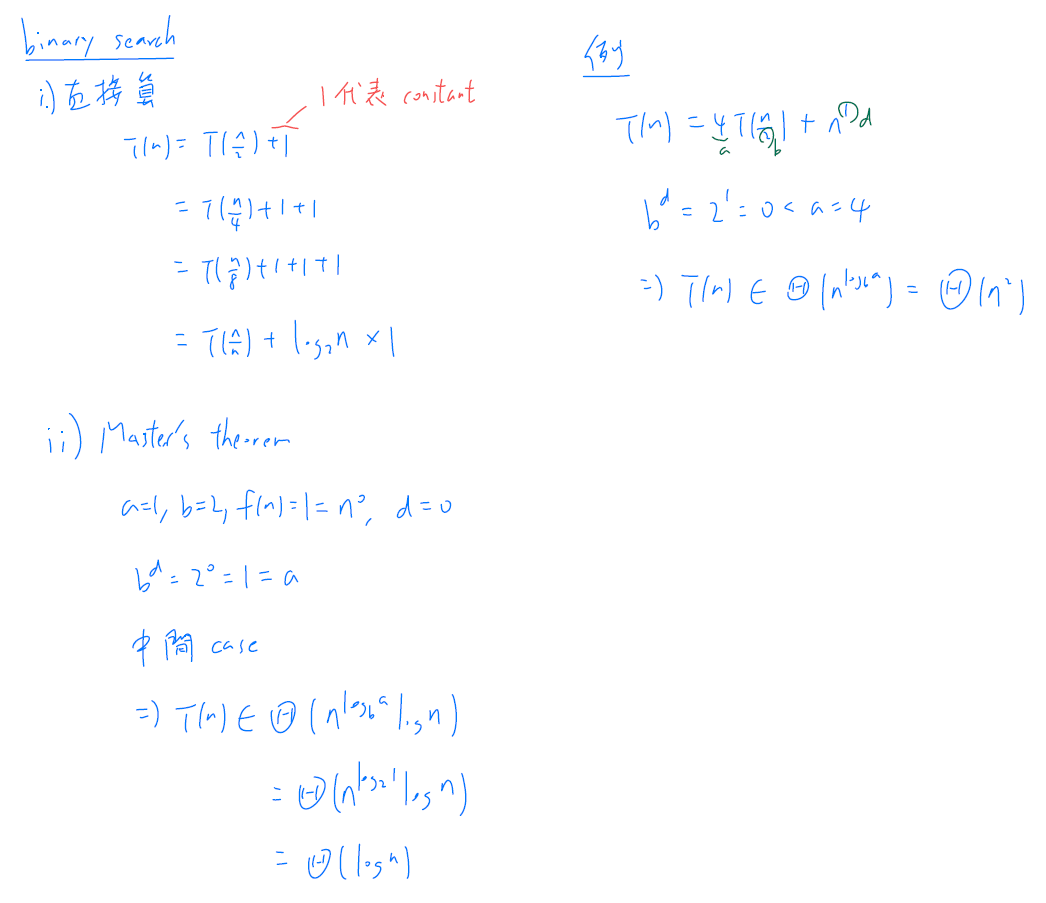 binary search
i.) 直接算
1 代表 constant
T(n) = T(n/2) + 1
= T(n/4) + 1 + 1
= T(n/8) + 1 + 1 + 1
= T(n/n) + log₂n × 1
ii) Master's theorem
a=1, b=2, f(n)=1=n⁰, d=0
b^d = 2⁰ = 1 = a
中間 case
⇒) T(n) ∈ Θ(n^(log_b a) log n)
= Θ(n^(log₂ 1) log n)
= Θ(log n)
例
T(n) = 4T(n/2) + n¹ d
a b
b^d = 2¹ = 0 < a = 4
⇒) T(n) ∈ Θ(n^(log_b a)) = Θ(n²)